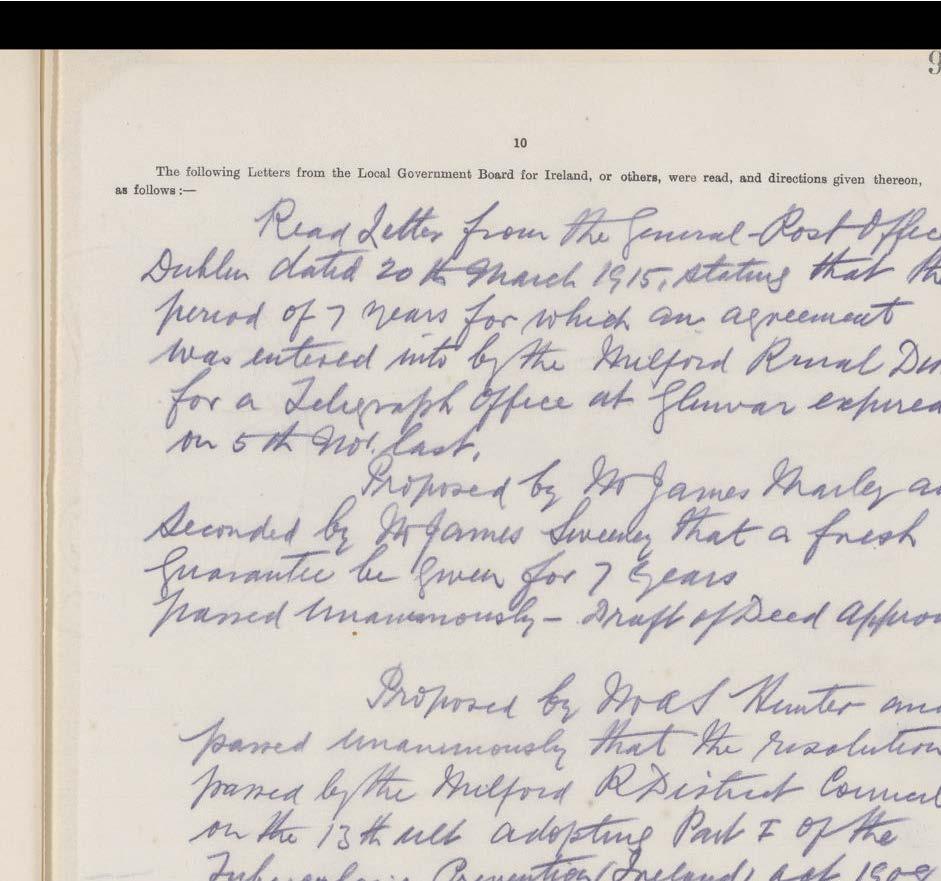 9
10
The following Letters from the Local Government Board for Ireland, or others, were read, and directions given thereon,
as follows :—
Read Letter from the General Post Offic
Dublin dated 20th March 1915, stating that the
period of 7 years for which an agreement
was entered into by the Milford Rural Dis
for a Telegraph Office at Glenvar expired
on 5th Nov. last.
Proposed by Mr James Marley an
Seconded by Mr James Sweeney that a fresh
Guarantee be given for 7 years
passed unanimously — Draft of Deed Approv
Proposed by Mr A S Hunter and
passed unanimously that the resolution
passed by the Milford R District Council
on the 13th ult adopting Part I of the
Tuberculosis Prevention (Ireland) act 1908